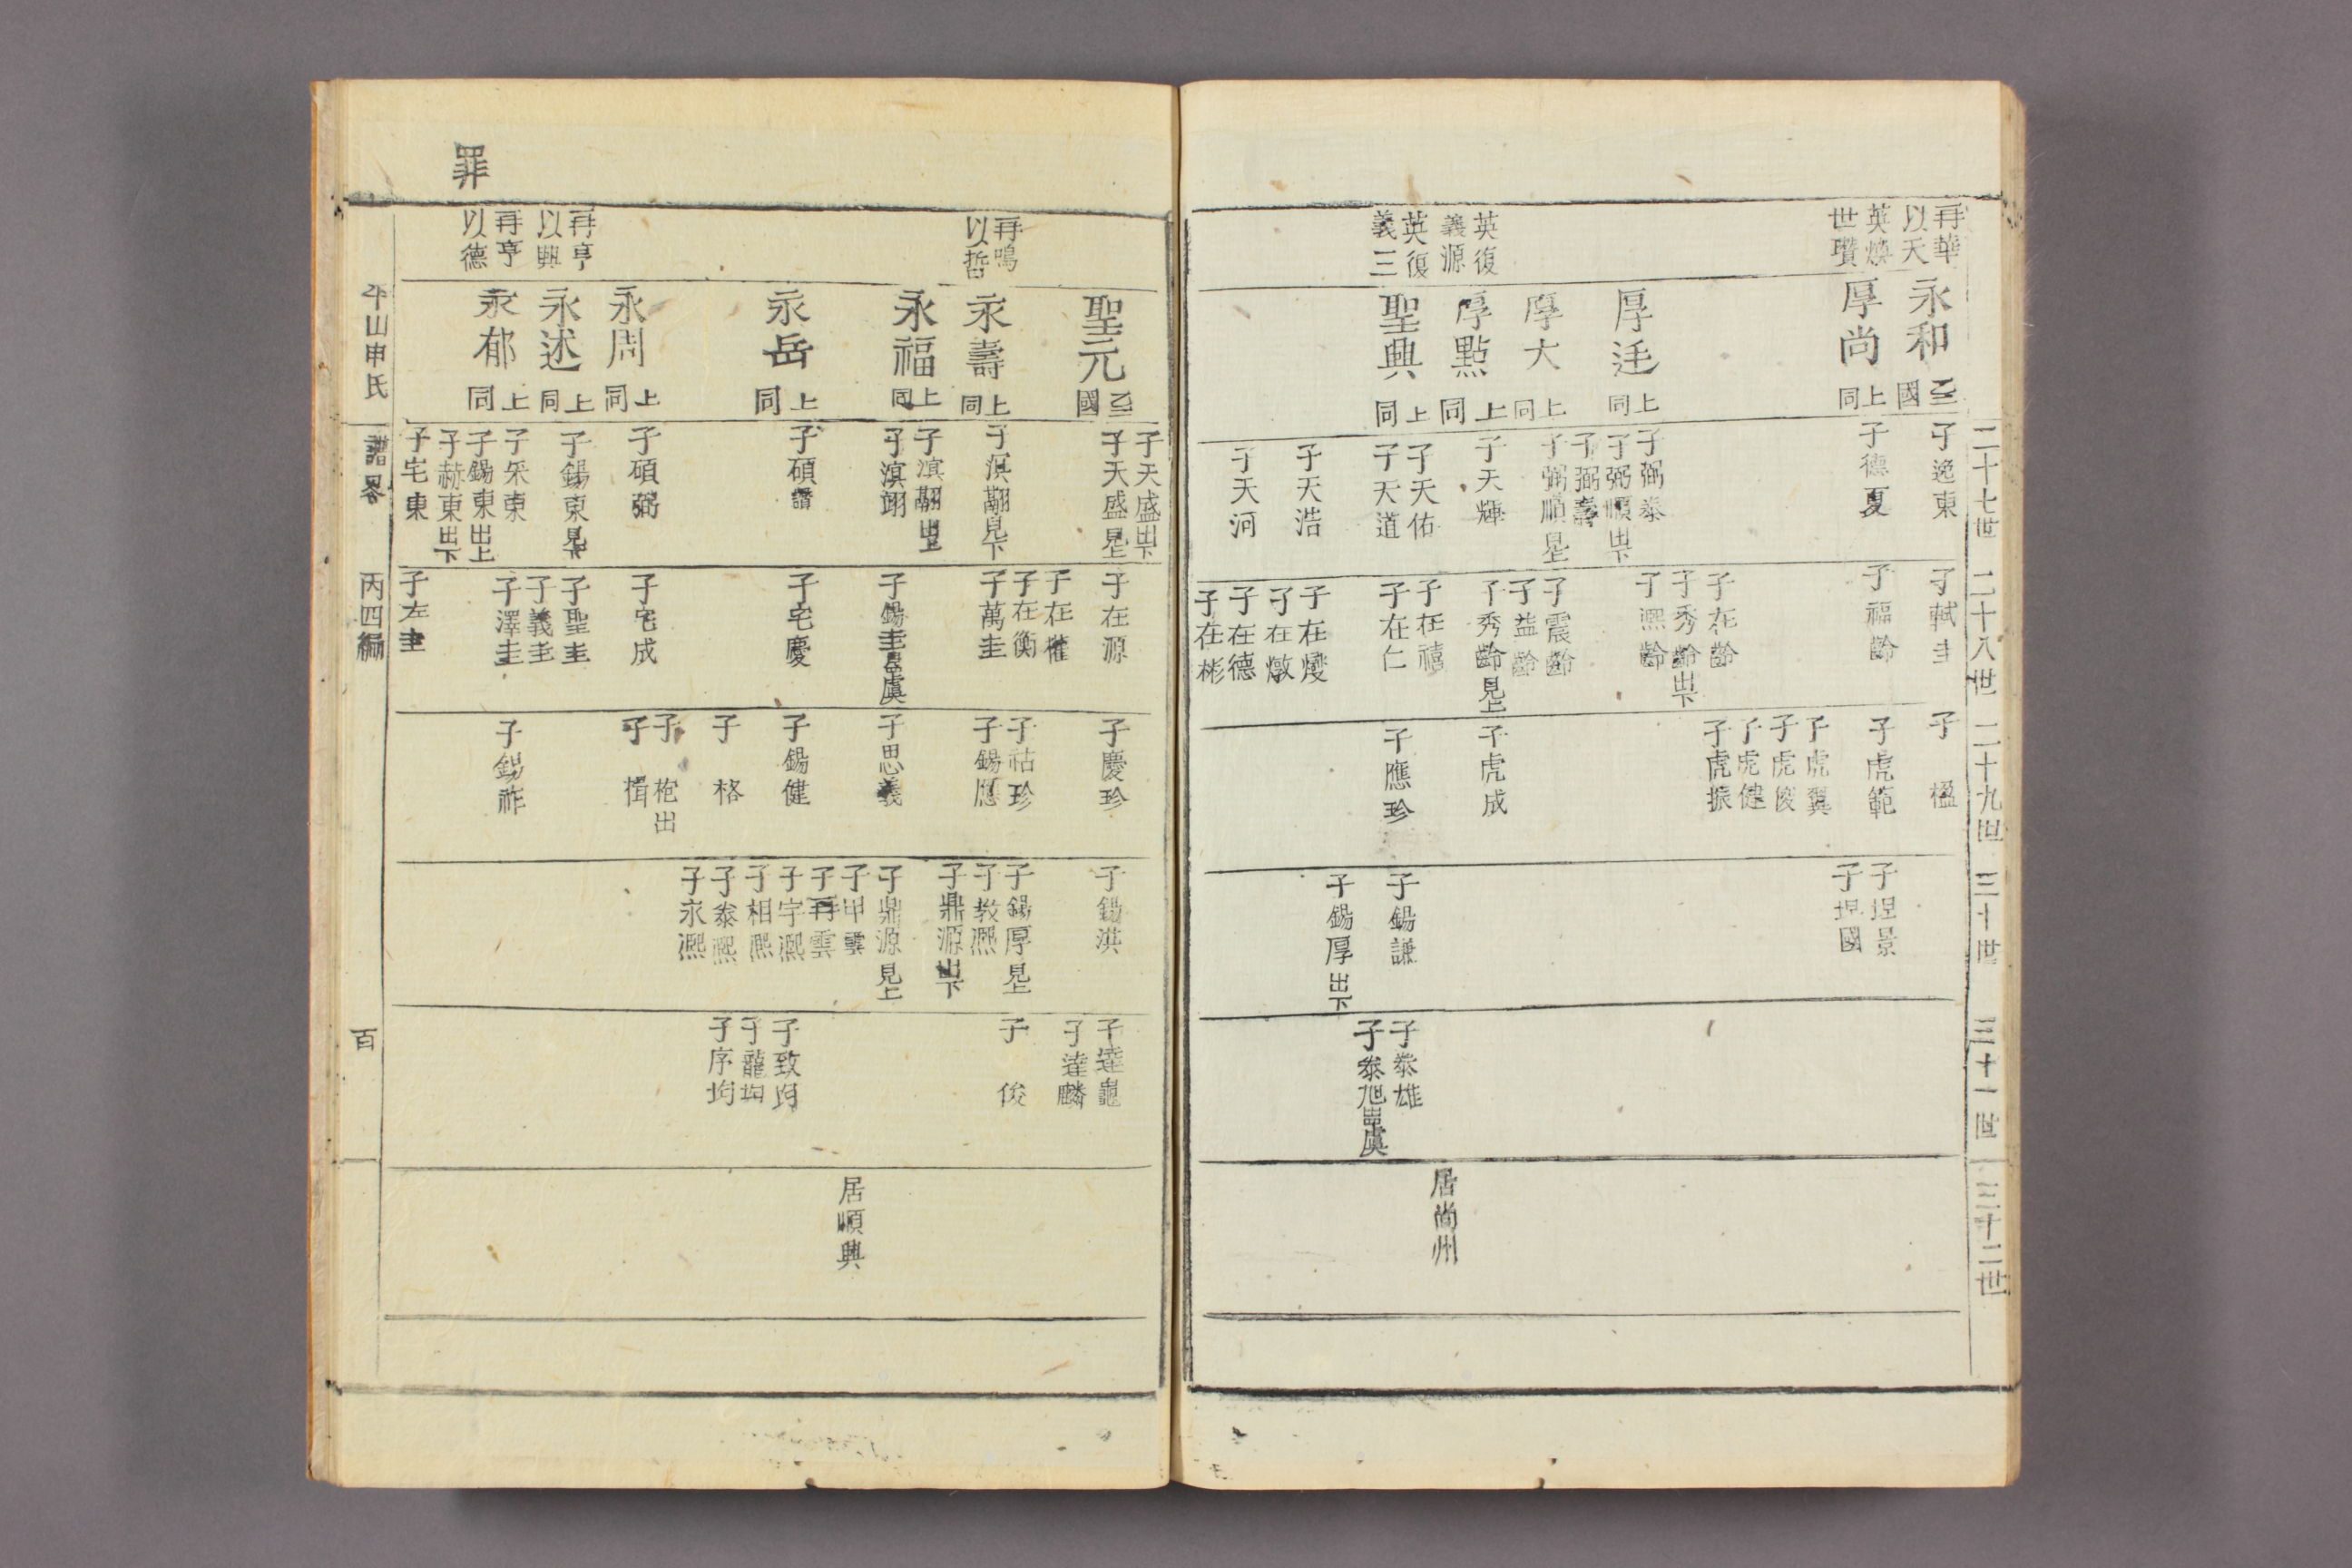 二十七世
二十八世
二十九世
三十世
三十一世
三十二世
再華
以天
英煥
世瓚
英復
義源
英復
義三
永和
國
厚尚
上同
厚廷
上同
厚大
上同
厚點
上同
聖興
上同
子逸東
子德夏
子弼泰
子弼順出下
子弼壽
子弼順見上
子天輝
子天佑
子天道
子天浩
子天河
子軾圭
子福齡
子在齡
子秀齡出下
子凞齡
子震齡
子益齡
子秀齡見上
子在禧
子在仁
子在燮
子在燉
子在德
子在彬
子楹
子虎範
子虎翼
子虎俊
子虎健
子虎振
子虎成
子應珍
子埕景
子埕國
子錫謙
子錫厚出下
子泰雄
子泰旭
居尙州
罪
再鳴
以哲
再亨
以興
再亨
以德
聖元
國
永壽
上同
永福
上同
永岳
上同
永周
上同
永述
上同
永郁
上同
子天盛出下
子天盛見上
子滨翮見下
子滨翮出上
子滨翊
子碩譜
子碩弼
子錫東見下
子采東
子錫東出上
子赫東出下
子宅東
子在源
子在權
子在衡
子萬圭
子錫圭
子宅慶
子宅成
子聖圭
子義圭
子澤圭
子左圭
子慶珍
子祜珍
子錫應
子思義
子錫健
子格
子枹出
子楫
子錫祚
子錫淇
子錫厚見上
子敎凞
子鼎源出下
子鼎源見上
子甲雲
子再雲
子宇凞
子相凞
子泰凞
子永凞
子達龜
子達麟
子俊
子致均
子龍均
子序均
居順興
平山申氏
譜畧
丙四編
百